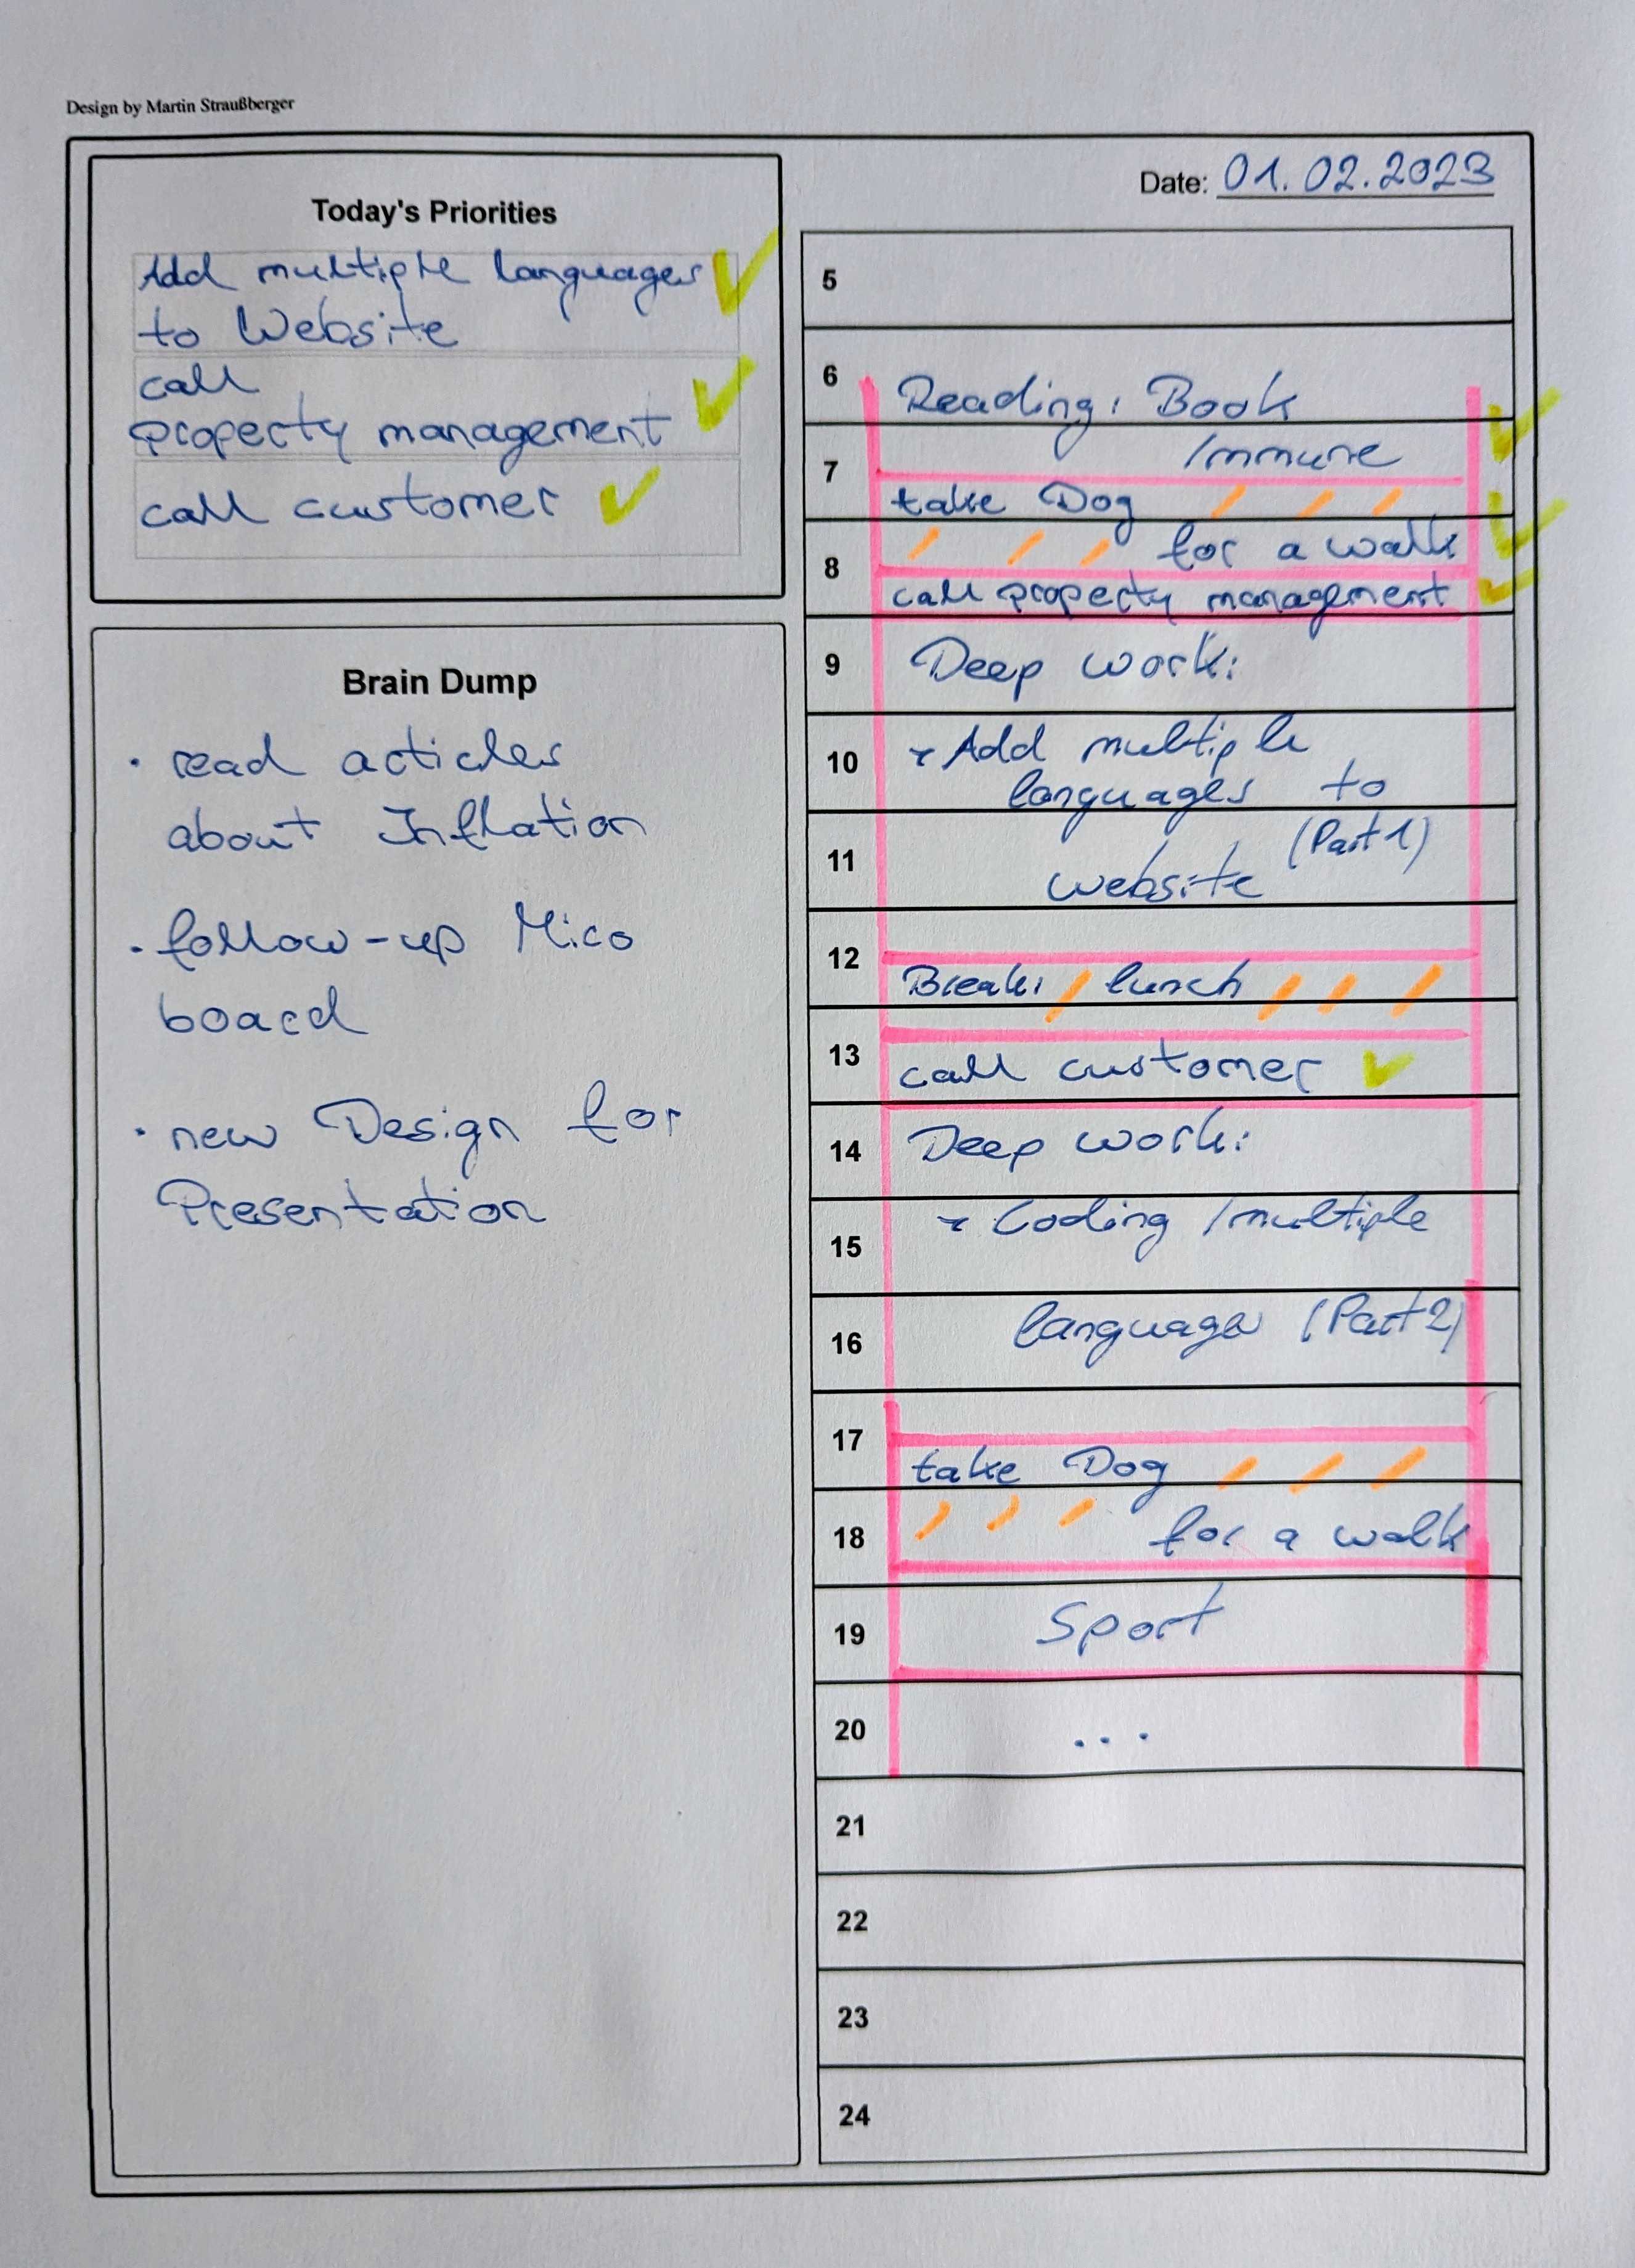 Design by Martin Straußberger
Today's Priorities
Add multiple languages
to Website
call
property management
call customer
Brain Dump
• read articles
about Inflation
• follow-up Miro
board
• new Design for
Presentation
Date: 01.02.2023
5
6 Reading: Book
Immune
7
take Dog
for a walk
8
call property management
9 Deep work:
Add multiple
10
languages to
(Part 1)
11
website
12
Break: lunch
13
call customer
14 Deep work:
Coding / multiple
15
language (Part 2)
16
17
take Dog
18 for a walk
19 Sport
20 ...
21
22
23
24